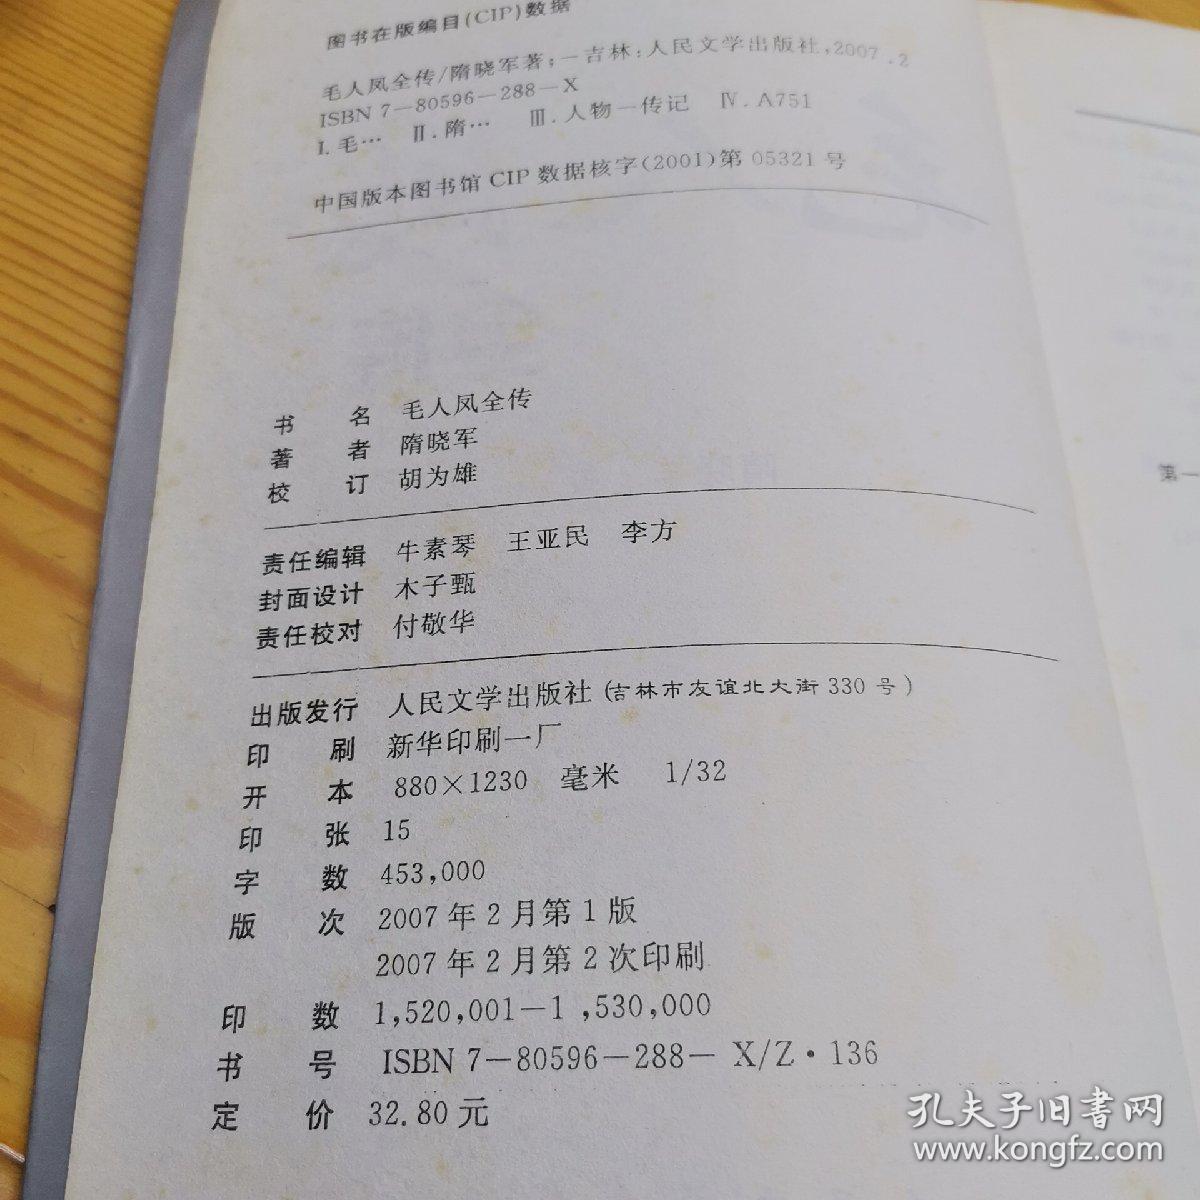 图书在版编目(CIP)数据
毛人凤全传/隋晓军著；—吉林：人民文学出版社，2007.2
ISBN 7—80596—288—X
Ⅰ.毛… Ⅱ.隋… Ⅲ.人物—传记 Ⅳ.A751
中国版本图书馆CIP数据核字(2001)第05321号
书名 毛人凤全传
著者 隋晓军
校订 胡为雄
责任编辑 牛素琴 王亚民 李方
封面设计 木子甄
责任校对 付敬华
出版发行 人民文学出版社(吉林市友谊北大街330号)
印刷 新华印刷一厂
开本 880×1230 毫米 1/32
印张 15
字数 453,000
版次 2007年2月第1版
2007年2月第2次印刷
印数 1,520,001—1,530,000
书号 ISBN 7—80596—288—X/Z·136
定价 32.80元
第一
孔夫子旧书网
www.kongfz.com